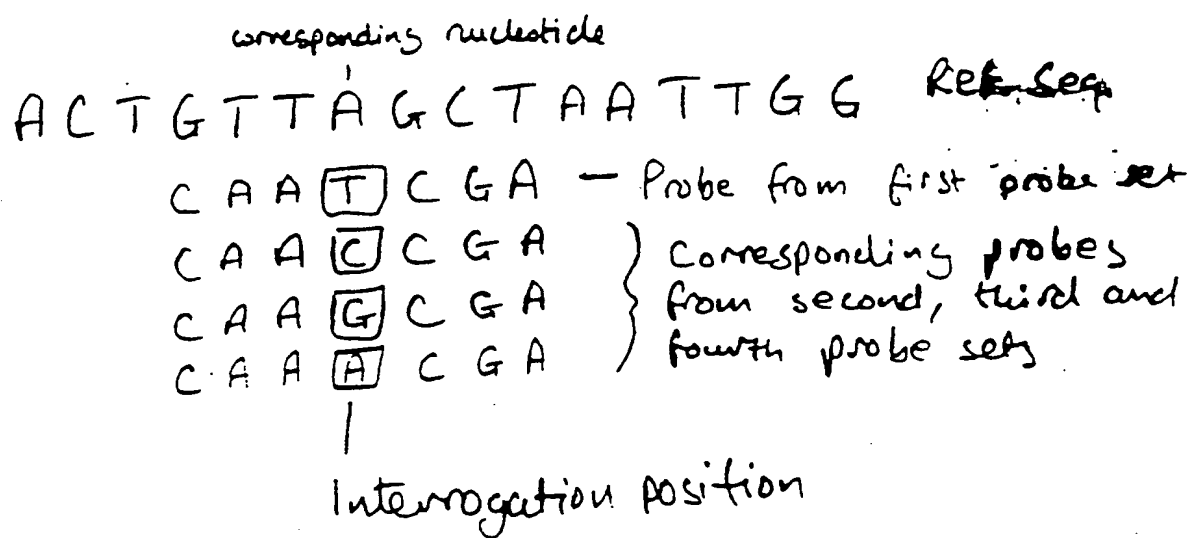 corresponding nucleotide
A C T G T T A G C T A A T T G G Ref. Seq
C A A T C G A — Probe from first probe set
C A A C C G A Corresponding probes
C A A G C G A from second, third and
C A A A C G A fourth probe sets
Interrogation position